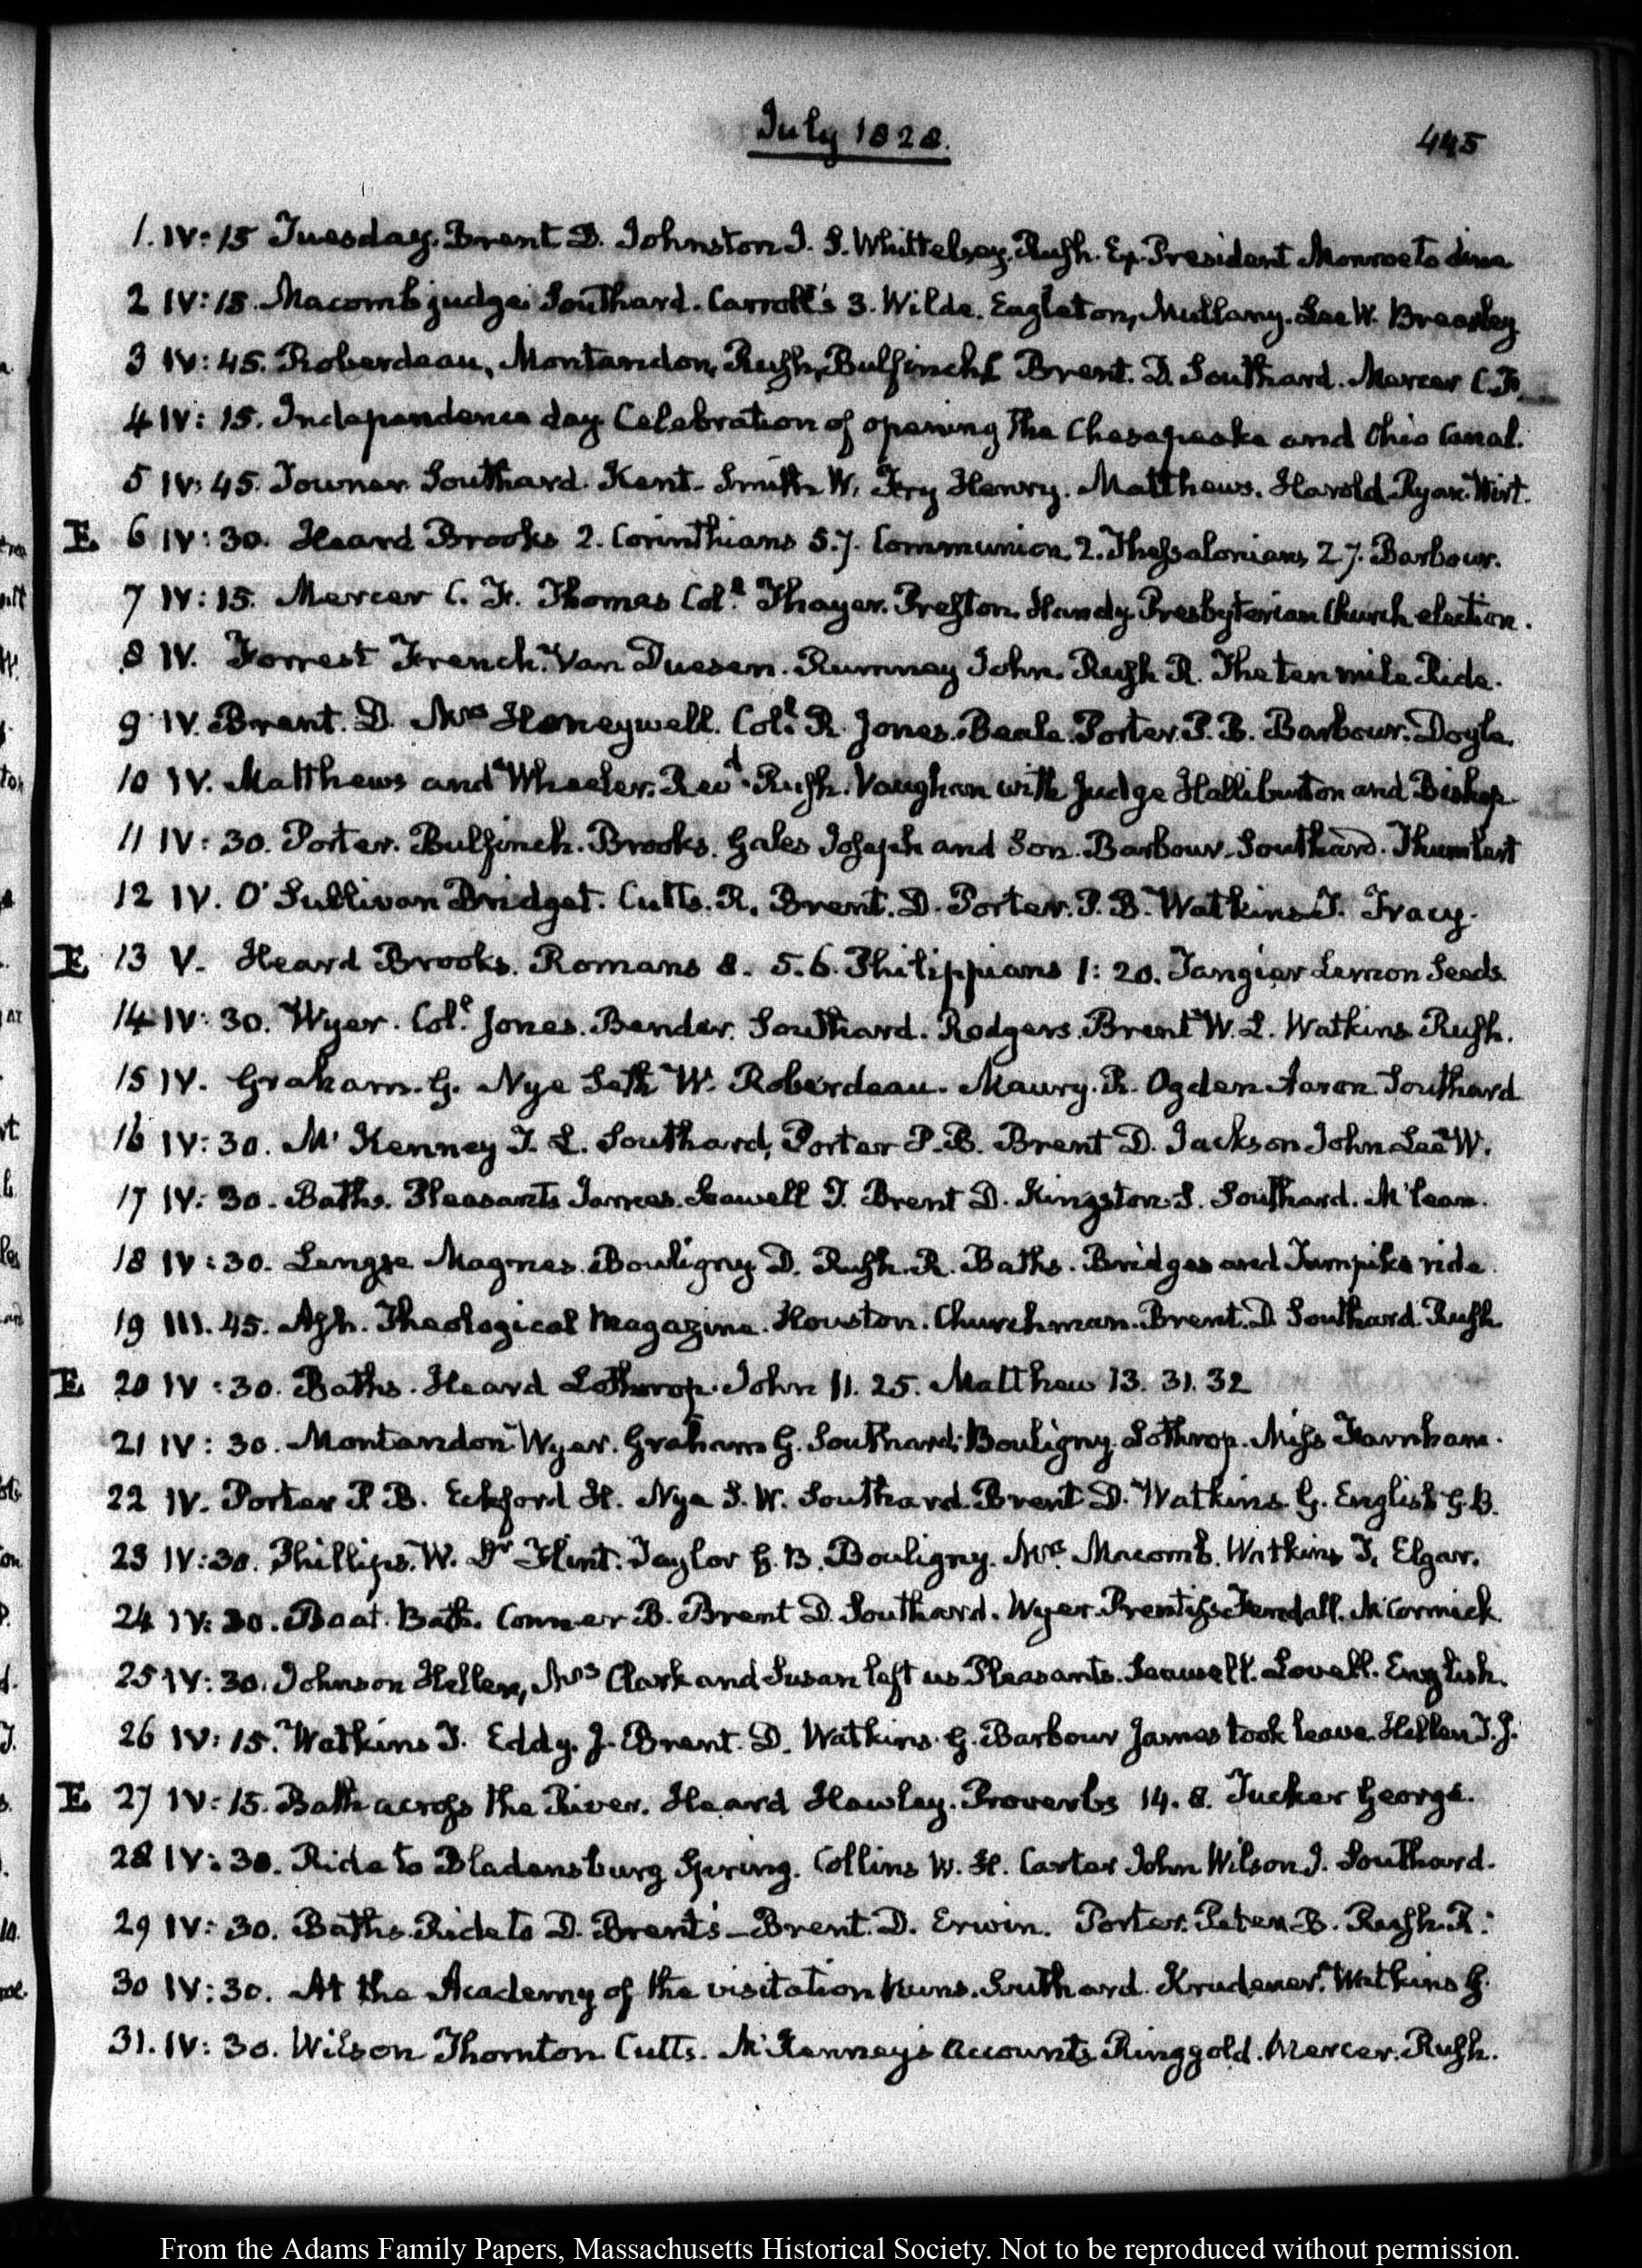 July 1828.
445
1. IV: 15 Tuesday. Brent D. Johnston J. S. Whittelsey. Rush. Ex-President Monroe to dine
2 IV: 15. Macomb judge Southard. Carroll's 3. Wilde. Eagleton, Mullany. Lee W. Brearley
3 IV: 45. Roberdeau, Montandon, Rush, Bulfinch Brent. D. Southard. Mercer C. F.
4 IV: 15. Independence day Celebration of opening the Chesapeake and Ohio Canal.
5 IV: 45. Towner Southard. Kent. Smith W. Henry. Matthews. Harold Ryan. Wirt.
E 6 IV: 30. Heard Brooks 2. Corinthians 5.7. Communion. 2. Thessalonians 2 7. Barbour.
7 IV: 15. Mercer C. F. Thomas Col.l Thayer. Preston. Handy. Presbyterian Church election.
8 IV. Forrest French. Van Duesen. Rumney John. Rush R. The ten mile Ride.
9 IV. Brent. D. Mrs Honeywell. Col.l R. Jones. Beale. Porter. P. B. Barbour. Doyle.
10 IV. Matthews and Wheeler. Revd. Rush. Vaughan with Judge Halliburton and Bishop
11 IV: 30. Porter. Bulfinch. Brooks. Gales Joseph and Son. Barbour. Southard.
12 IV. O'Sullivan Bridget. Cutts. R. Brent. D. Porter. P. B. Watkins T. Tracy.
E 13 V. Heard Brooks. Romans 8. 5.6. Philippians 1: 20. Tangier Lemon Seeds.
14 IV: 30. Wyer. Col.l Jones. Bender. Southard. Rodgers. Brent W. L. Watkins Rush.
15 IV. Graham. G. Nye Seth W. Roberdeau. Maury. R. Ogden Aaron Southard
16 IV: 30. McKenney T. L. Southard, Porter P. B. Brent D. Jackson John Lee W.
17 IV: 30. Baths. Pleasants James. Seawell T. Brent D. Kingston S. Southard. M'lean.
18 IV: 30. Langse Magnes. Bouligny. D. Rush. R. Baths. Bridges and Turnpike ride.
19 III. 45. Ash. Theological Magazine. Houston. Churchman. Brent. D Southard. Rush
E 20 IV: 30. Baths. Heard Lothrop. John 11. 25. Matthew 13. 31. 32
21 IV: 30. Montandon Wyer. Graham G. Southard. Bouligny. Lothrop. Miss Farnham.
22 IV. Porter P B. Eckford H. Nye S. W. Southard. Brent D. Watkins. G. English G. B.
23 IV: 30. Phillips. W. Dr Flint. Taylor G. B. Bouligny. Mrs. Macomb. Watkins T. Elgar.
24 IV: 30. Boat. Bath. Conner B. Brent D. Southard. Wyer. Prentiss Kendall. McCormick
25 IV: 30. Johnson Hellen, Mrs Clark and Susan left us Pleasants. Seawell. Lovell. English.
26 IV: 15. Watkins T. Eddy. J. Brent. D. Watkins. G. Barbour James took leave. Hellen T. J.
E 27 IV: 15. Bath across the River. Heard Hawley. Proverbs 14. 8. Tucker George.
28 IV: 30. Ride to Bladensburg Spring. Collins W. H. Carter John Wilson J. Southard.
29 IV: 30. Baths. Ride to D. Brent's – Brent. D. Erwin. Porter. Peter B. Rush. R.
30 IV: 30. At the Academy of the visitation Nuns. Southard. Krudener. Watkins G.
31. IV: 30. Wilson Thornton Cutts. McKenney's Accounts Ringgold. Mercer. Rush.
From the Adams Family Papers, Massachusetts Historical Society. Not to be reproduced without permission.